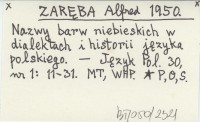 ZARĘBA Alfred 1950.
Nazwy barw niebieskich w
dialektach i historii języka
polskiego. — Język Pol. 30,
nr 1: 11-31. MT, WHP. * P, O, S.